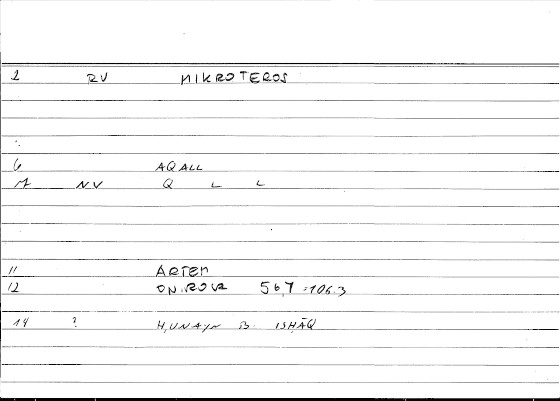 2 RV MIKROTEROS
6 AQALL
7 NV Q L L
11 ARTEM
12 ONIROUR 5 6,7 = 106.3
14 ? ḤUNAYN B. ISḤĀQ